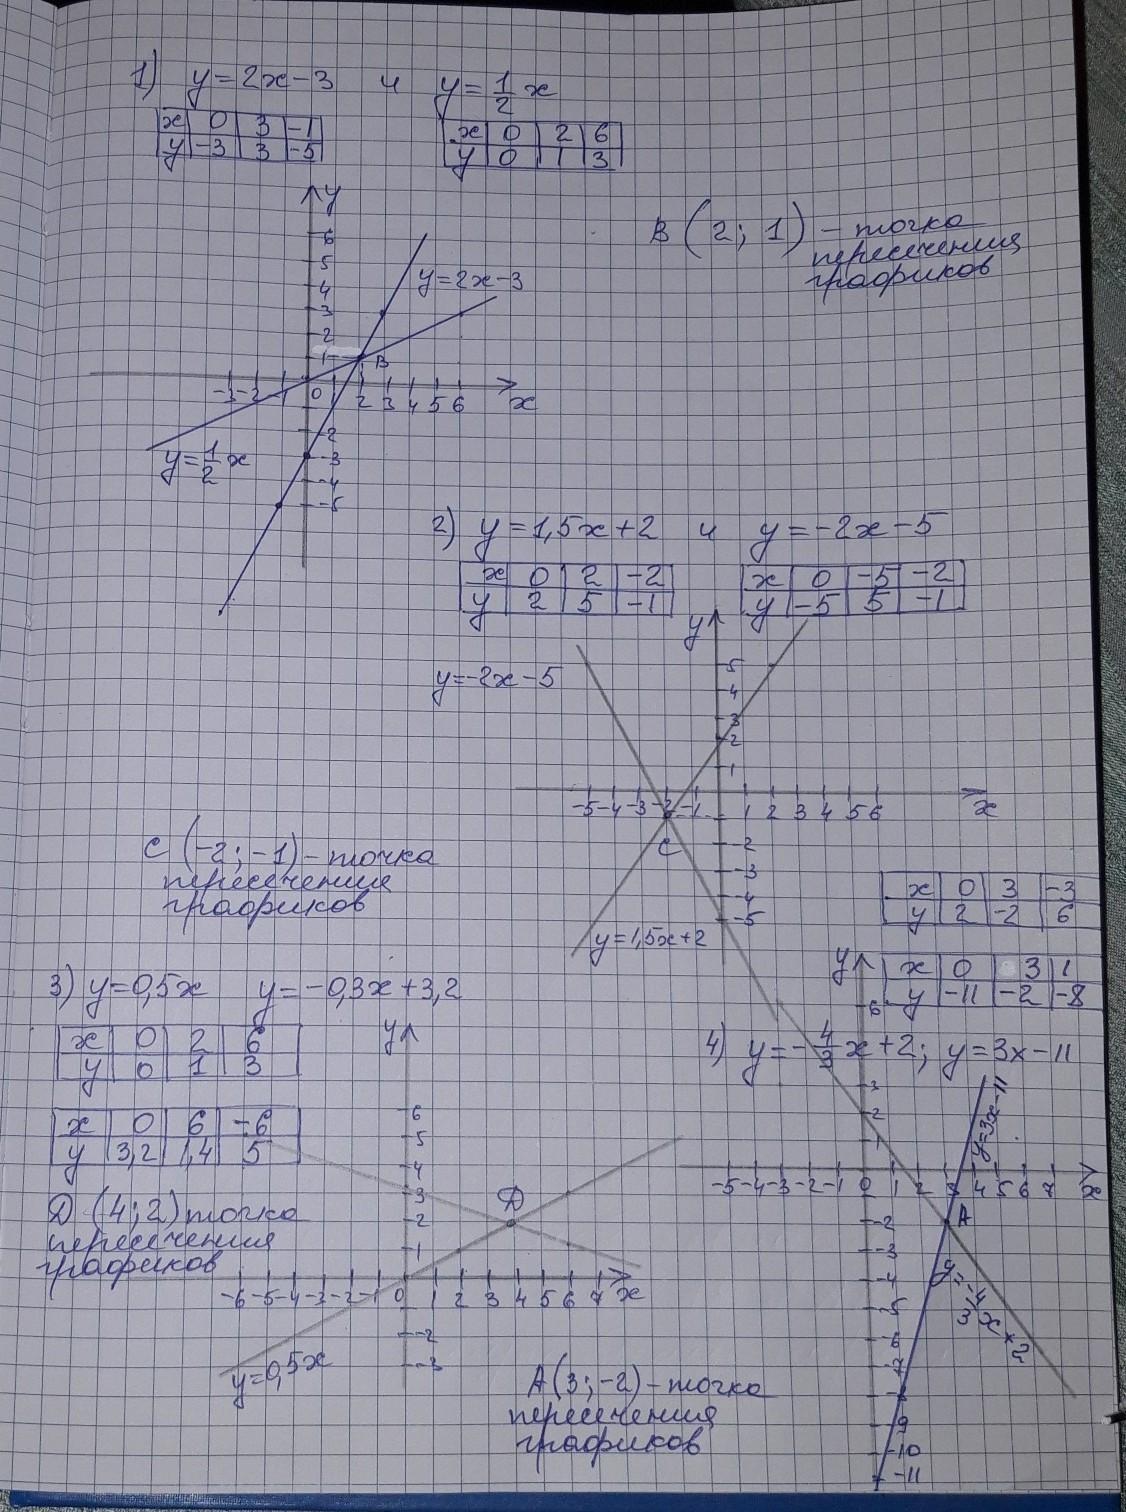 1) y=2x-3 и y=1/2x
x 0 3 -1
y -3 3 -5
x 0 2 6
y 0 1 3
B (2; 1) - точка
пересечения
графиков
y
6
5
4
3
2
1
y=2x-3
B
-3 -2 0 2 3 4 5 6 x
-2
-3
-4
-5
y=1/2x
2) y=1,5x+2 и y=-2x-5
x 0 2 -2
y 2 5 -1
x 0 -5 -2
y -5 5 -1
y
y=-2x-5
5
4
3
2
1
-5 -4 -3 -2 -1 1 2 3 4 5 6 x
C
-2
-3
-4
-5
y=1,5x+2
C (-2; -1) - точка
пересечения
графиков
x 0 3 -3
y 2 -2 6
x 0 3 1
y -11 -2 -8
3) y=0,5x y=-0,3x+3,2
x 0 2 6
y 0 1 3
x 0 6 -6
y 3,2 1,4 5
D (4; 2) точка
пересечения
графиков
y
6
5
4
3
2
1
D
-6 -5 -4 -3 -2 -1 0 1 2 3 4 5 6 7 x
-2
-3
y=0,5x
4) y=-4/3x+2; y=3x-11
y
6
3
2
1
y=3x-11
-5 -4 -3 -2 -1 0 1 2 3 4 5 6 7 x
A
-2
-3
-4
-5
-6
-7
-9
-10
-11
y=-4/3x+2
A(3; -2) - точка
пересечения
графиков